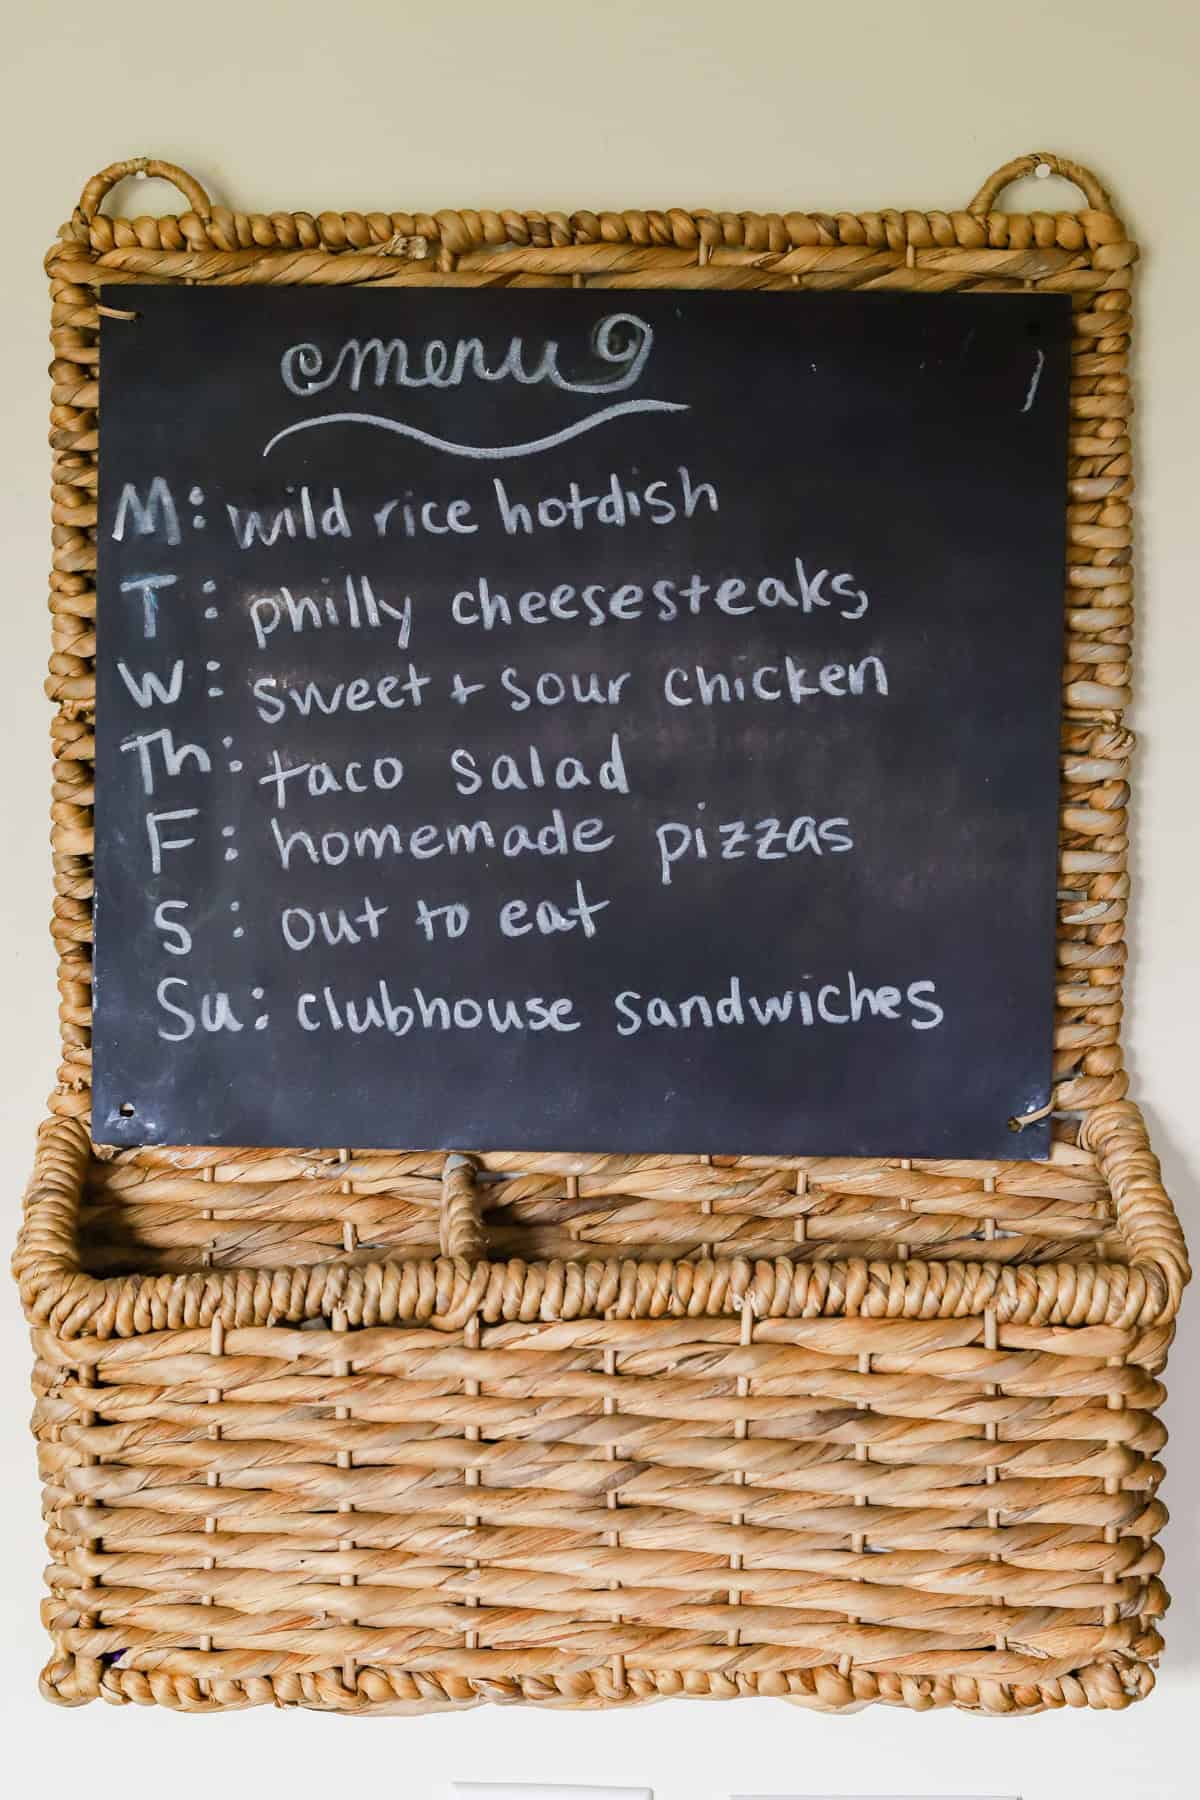 menu
M: wild rice hotdish
T: philly cheesesteaks
W: sweet + sour chicken
Th: taco salad
F: homemade pizzas
S: out to eat
Su: clubhouse sandwiches